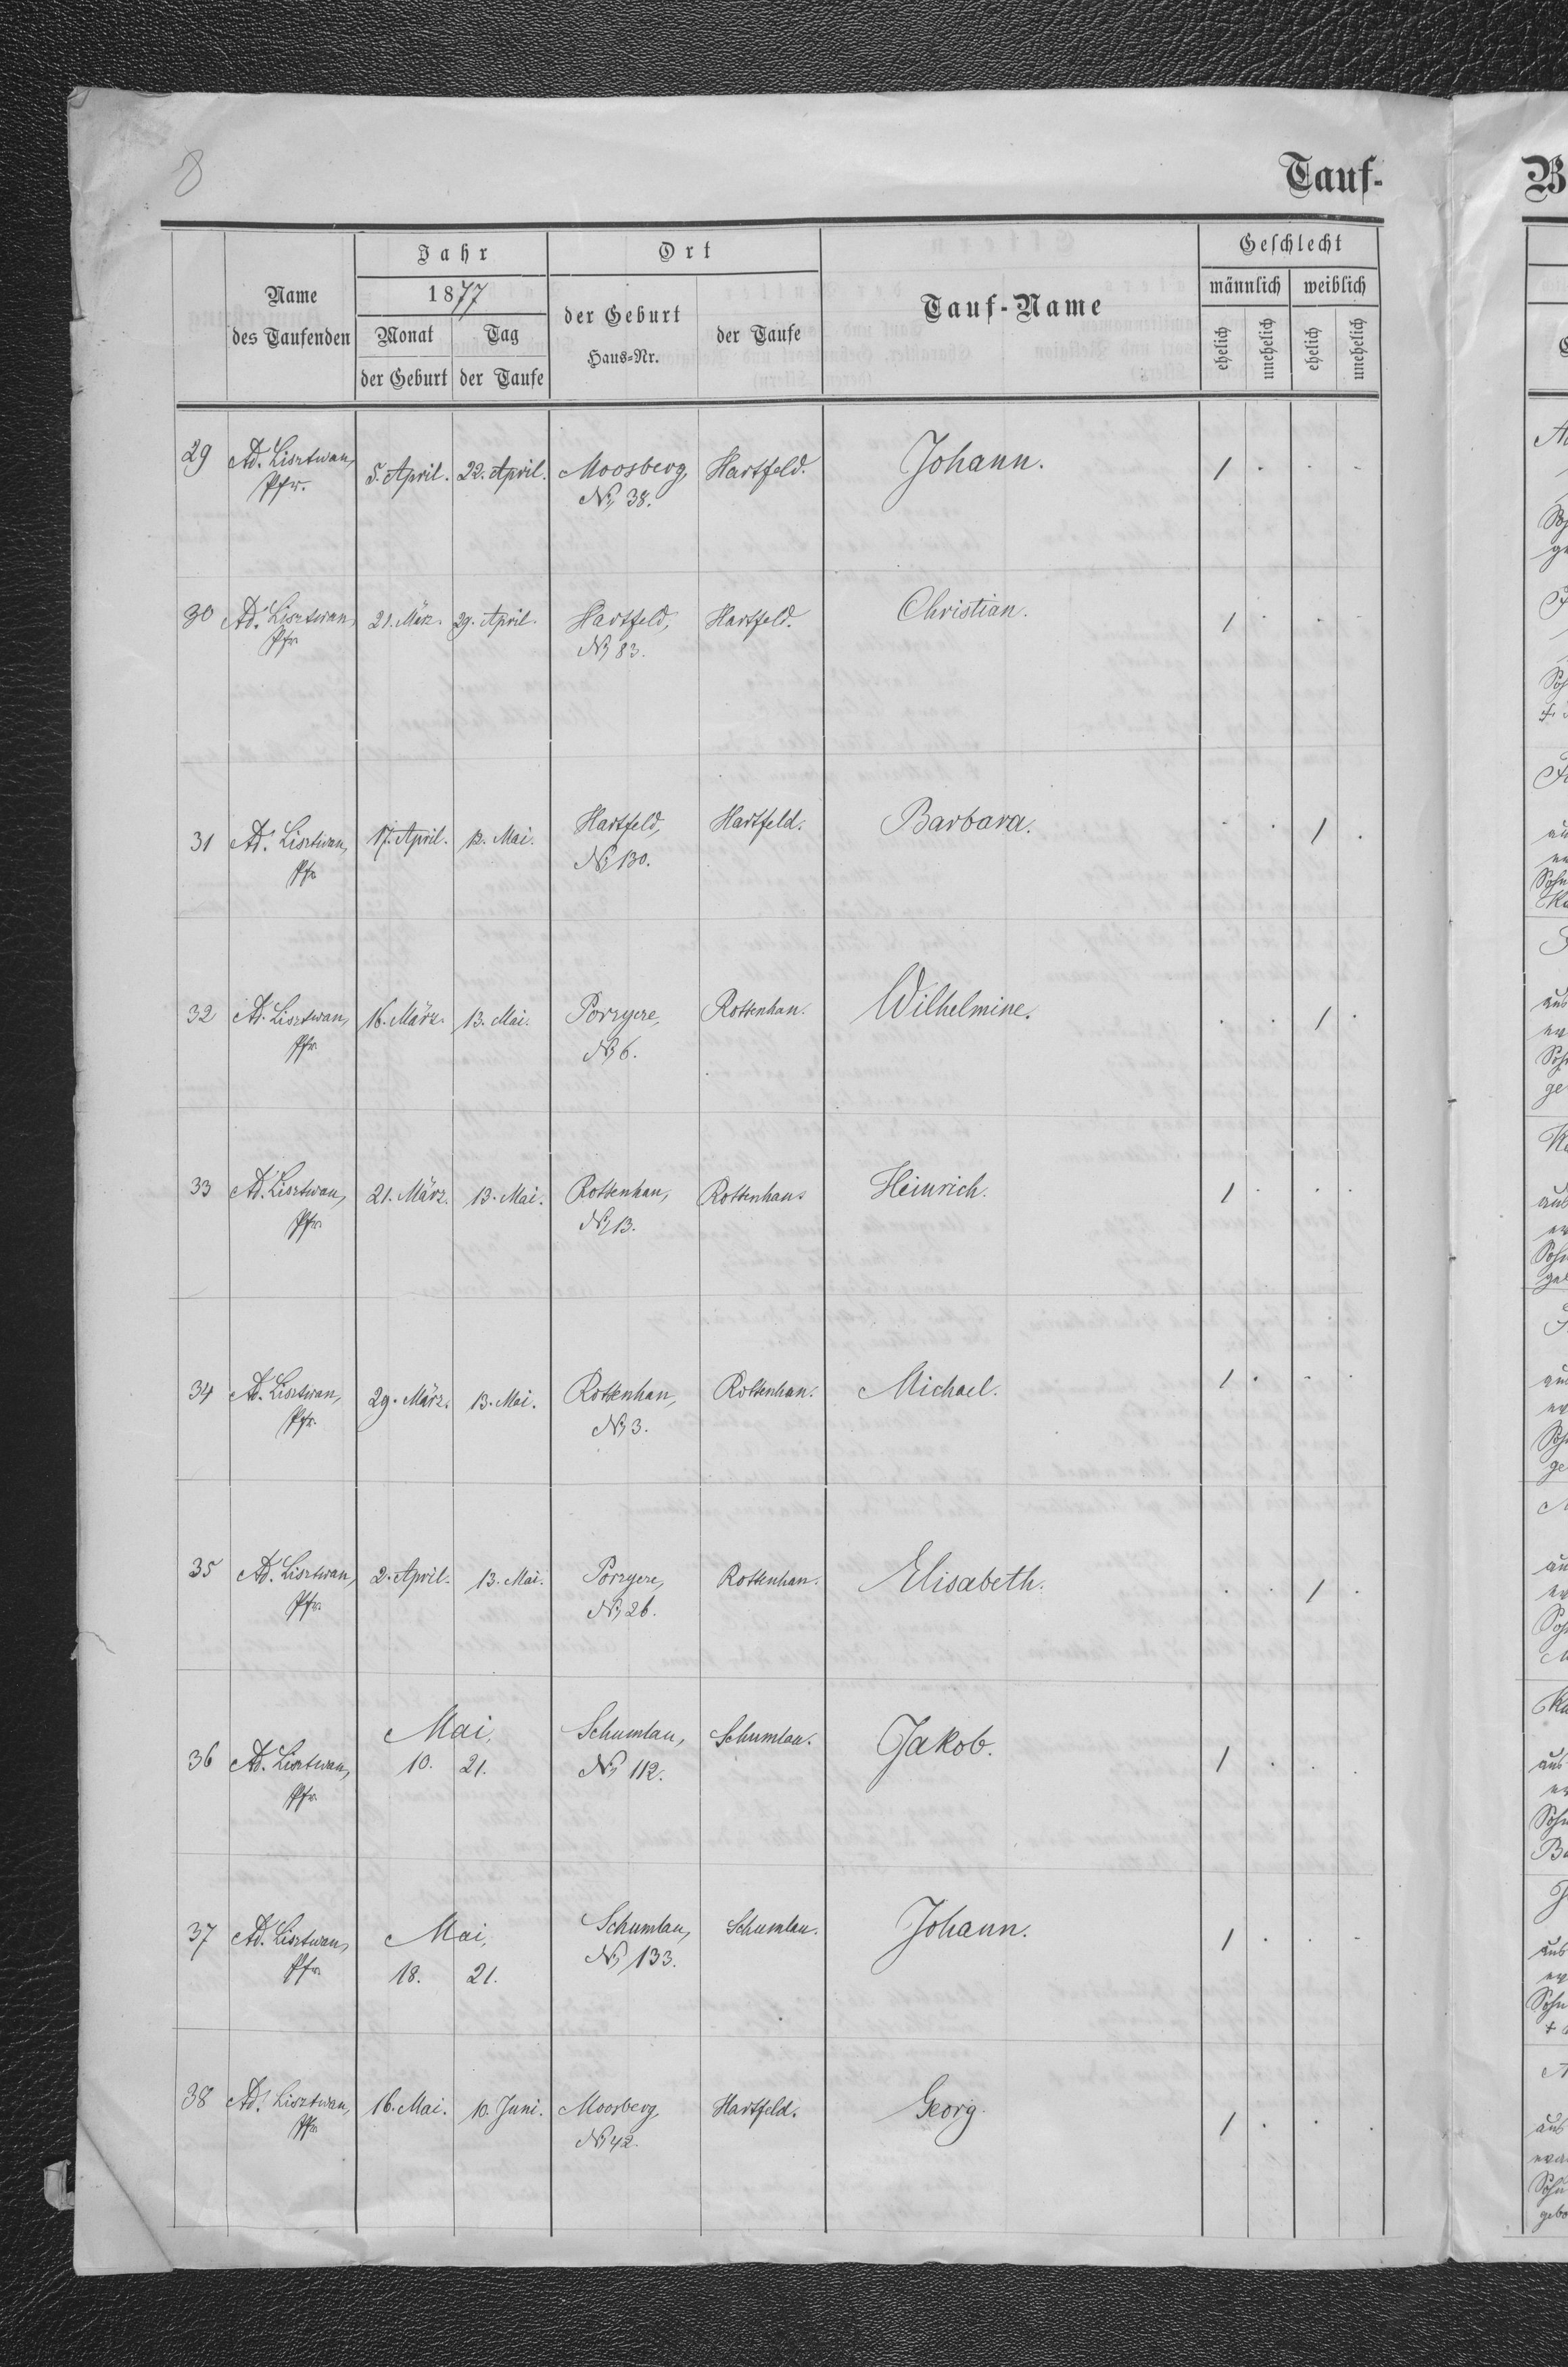 8
Tauf-
Name des Taufenden
Jahr
1877
Monat
Tag
der Geburt
der Taufe
Ort
der Geburt
Haus-Nr.
der Taufe
Tauf-Name
Geschlecht
männlich
weiblich
ehelich
unehelich
ehelich
unehelich
29 Ad. Lisztwan, 5. April. 22. April. Moosberg, Hartfeld. Johann. 1 . . .
Pfr. № 38.
30 Ad. Lisztwan, 21. März. 29. April. Hartfeld, Hartfeld. Christian. 1 . . .
Pfr № 83.
31 Ad. Lisztwan, 17. April. 12. Mai. Hartfeld, Hartfeld. Barbara. . . 1 .
Pfr № 130.
32 Ad. Lisztwan, 16. März. 13. Mai. Porzycze, Rottenhan. Wilhelmine. . . 1 .
Pfr. № 6.
33 Ad. Lisztwan, 21. März. 13. Mai. Rottenhan, Rottenhan. Heinrich. 1 . . .
Pfr № 13.
34 Ad. Lisztwan, 29. März. 13. Mai. Rottenhan, Rottenhan. Michael. 1 . . .
Pfr. № 3.
35 Ad. Lisztwan, 2. April. 13. Mai. Porzycze, Rottenhan. Elisabeth. . . 1 .
Pfr. № 26.
36 Ad. Lisztwan, Mai, Schumlau, Schumlau. Jakob. 1 . . .
Pfr. 10. 21. № 112.
37 Ad. Lisztwan, Mai, Schumlau, Schumlau. Johann. 1 . . .
Pfr. 18. 21. № 133.
38 Ad. Lisztwan, 16. Mai. 10. Juni. Moosberg Hartfeld. Georg. 1 . . .
Pfr. № 42.